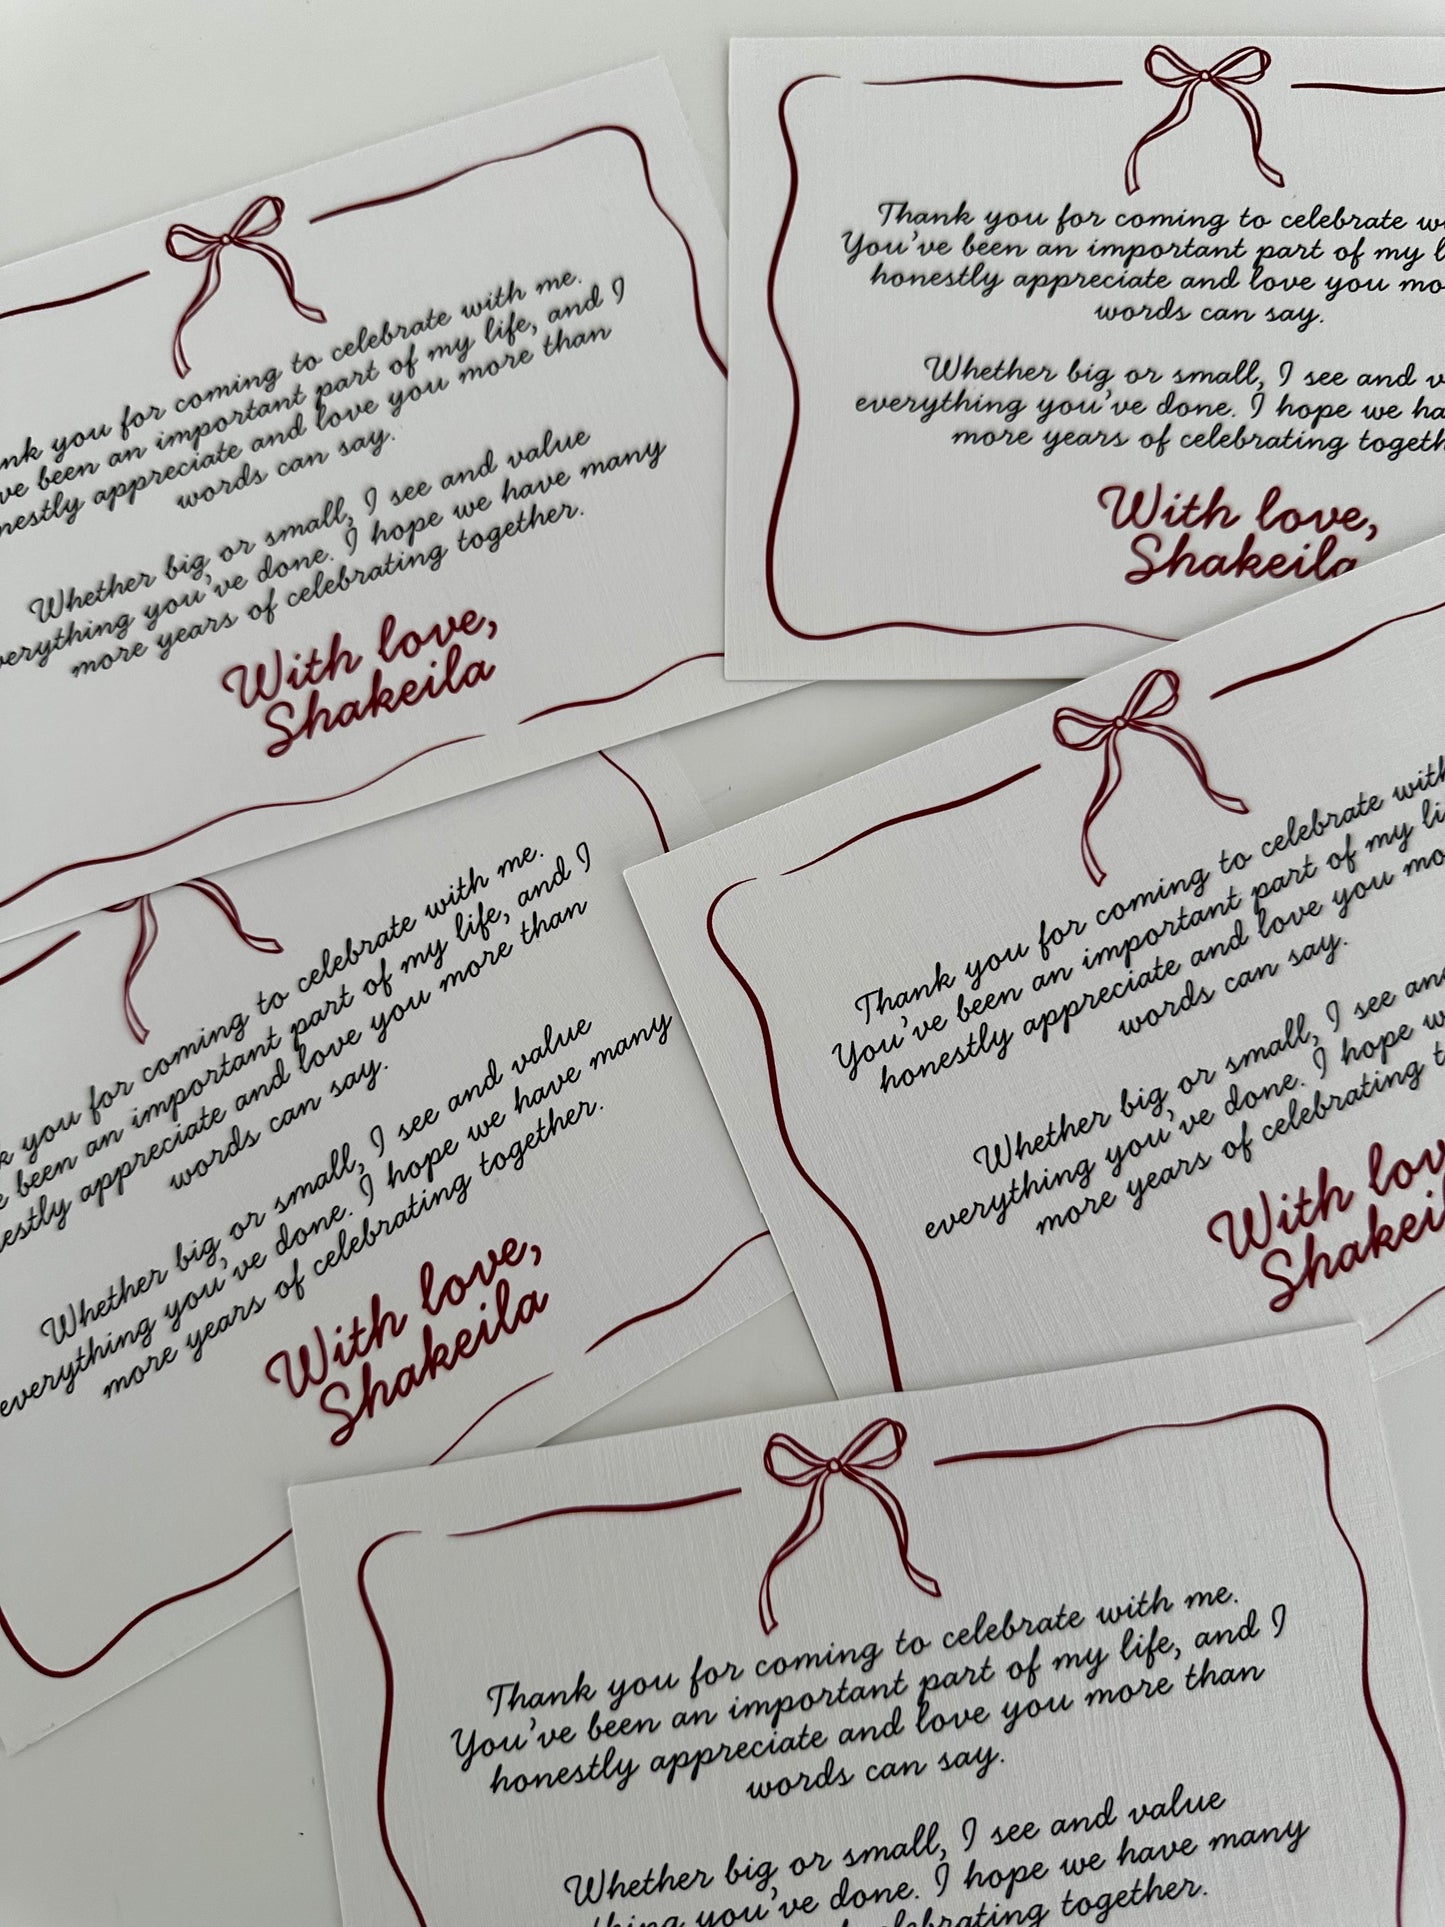 Thank you for coming to celebrate with me.
ve been an important part of my life, and I
honestly appreciate and love you more than
words can say.
Whether big or small, I see and value
everything you've done. I hope we have many
more years of celebrating together.
With love,
Shakeila
Thank you for coming to celebrate
You've been an important part of my
honestly appreciate and love you
words can say.
Whether big or small, I see and
everything you've done. I hope we
more years of celebrating
With love,
Shakeila
you for coming to celebrate with me.
been an important part of my life, and I
appreciate and love you more than
words can say.
Whether big or small, I see and value
everything you've done. I hope we have many
more years of celebrating together.
With love,
Shakeila
Thank you for coming to celebrate with
You've been an important part of my
honestly appreciate and love you
words can say.
Whether big or small, I see
everything you've done. I hope
more years of celebrating
With
Thank you for coming to celebrate with me.
You've been an important part of my life, and I
honestly appreciate and love you more than
words can say.
Whether big or small, I see and value
you've done. I hope we have many
together.